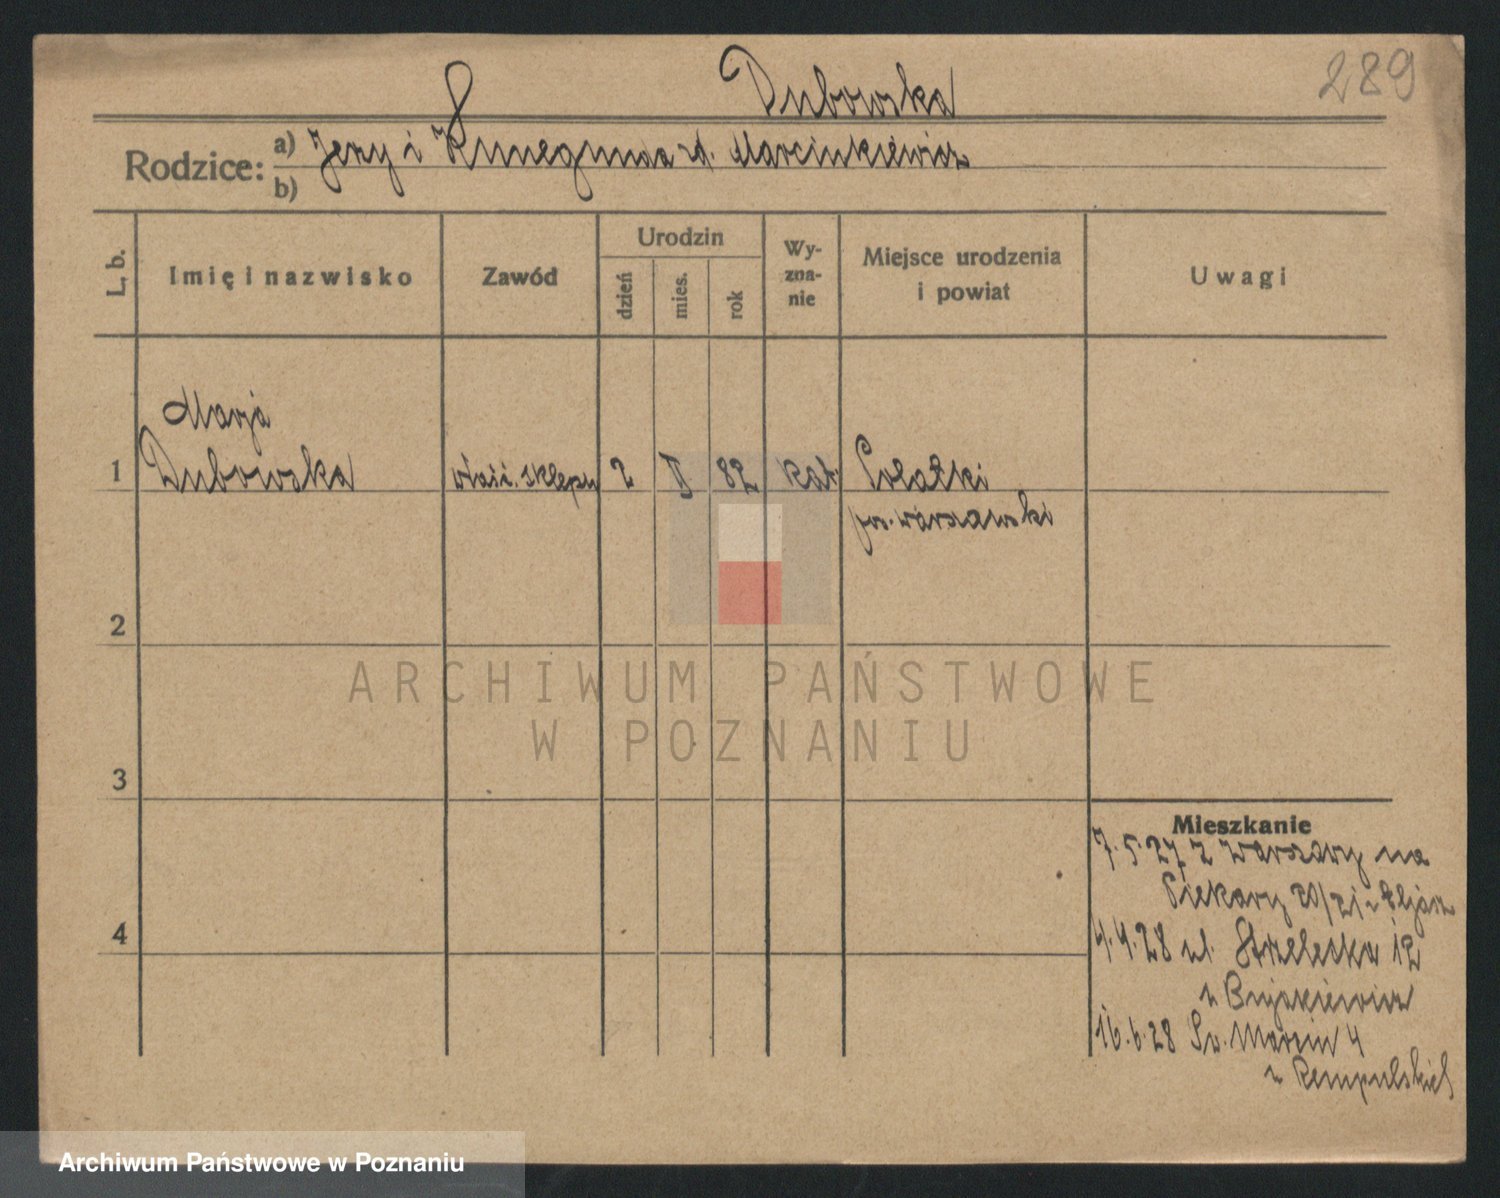 289
Dubowska
Rodzice: a) Jerzy i Kunegunda zd. Marcinkiewicz
b)
L. b.
Imię i nazwisko
Zawód
Urodzin
dzień
mies.
rok
Wy-
zna-
nie
Miejsce urodzenia
i powiat
Uwagi
Marja
1 Dubowska właśc. sklepu 2 II 82 kat.
pow. warszawski
2
3
4
Mieszkanie
7.5.27 z Warszawy na
Piekary 20/21
4.4.28 ul. Strzelecka 12
16.6.28 Św. Marcin 4
ARCHIWUM PAŃSTWOWE
W POZNANIU
Archiwum Państwowe w Poznaniu